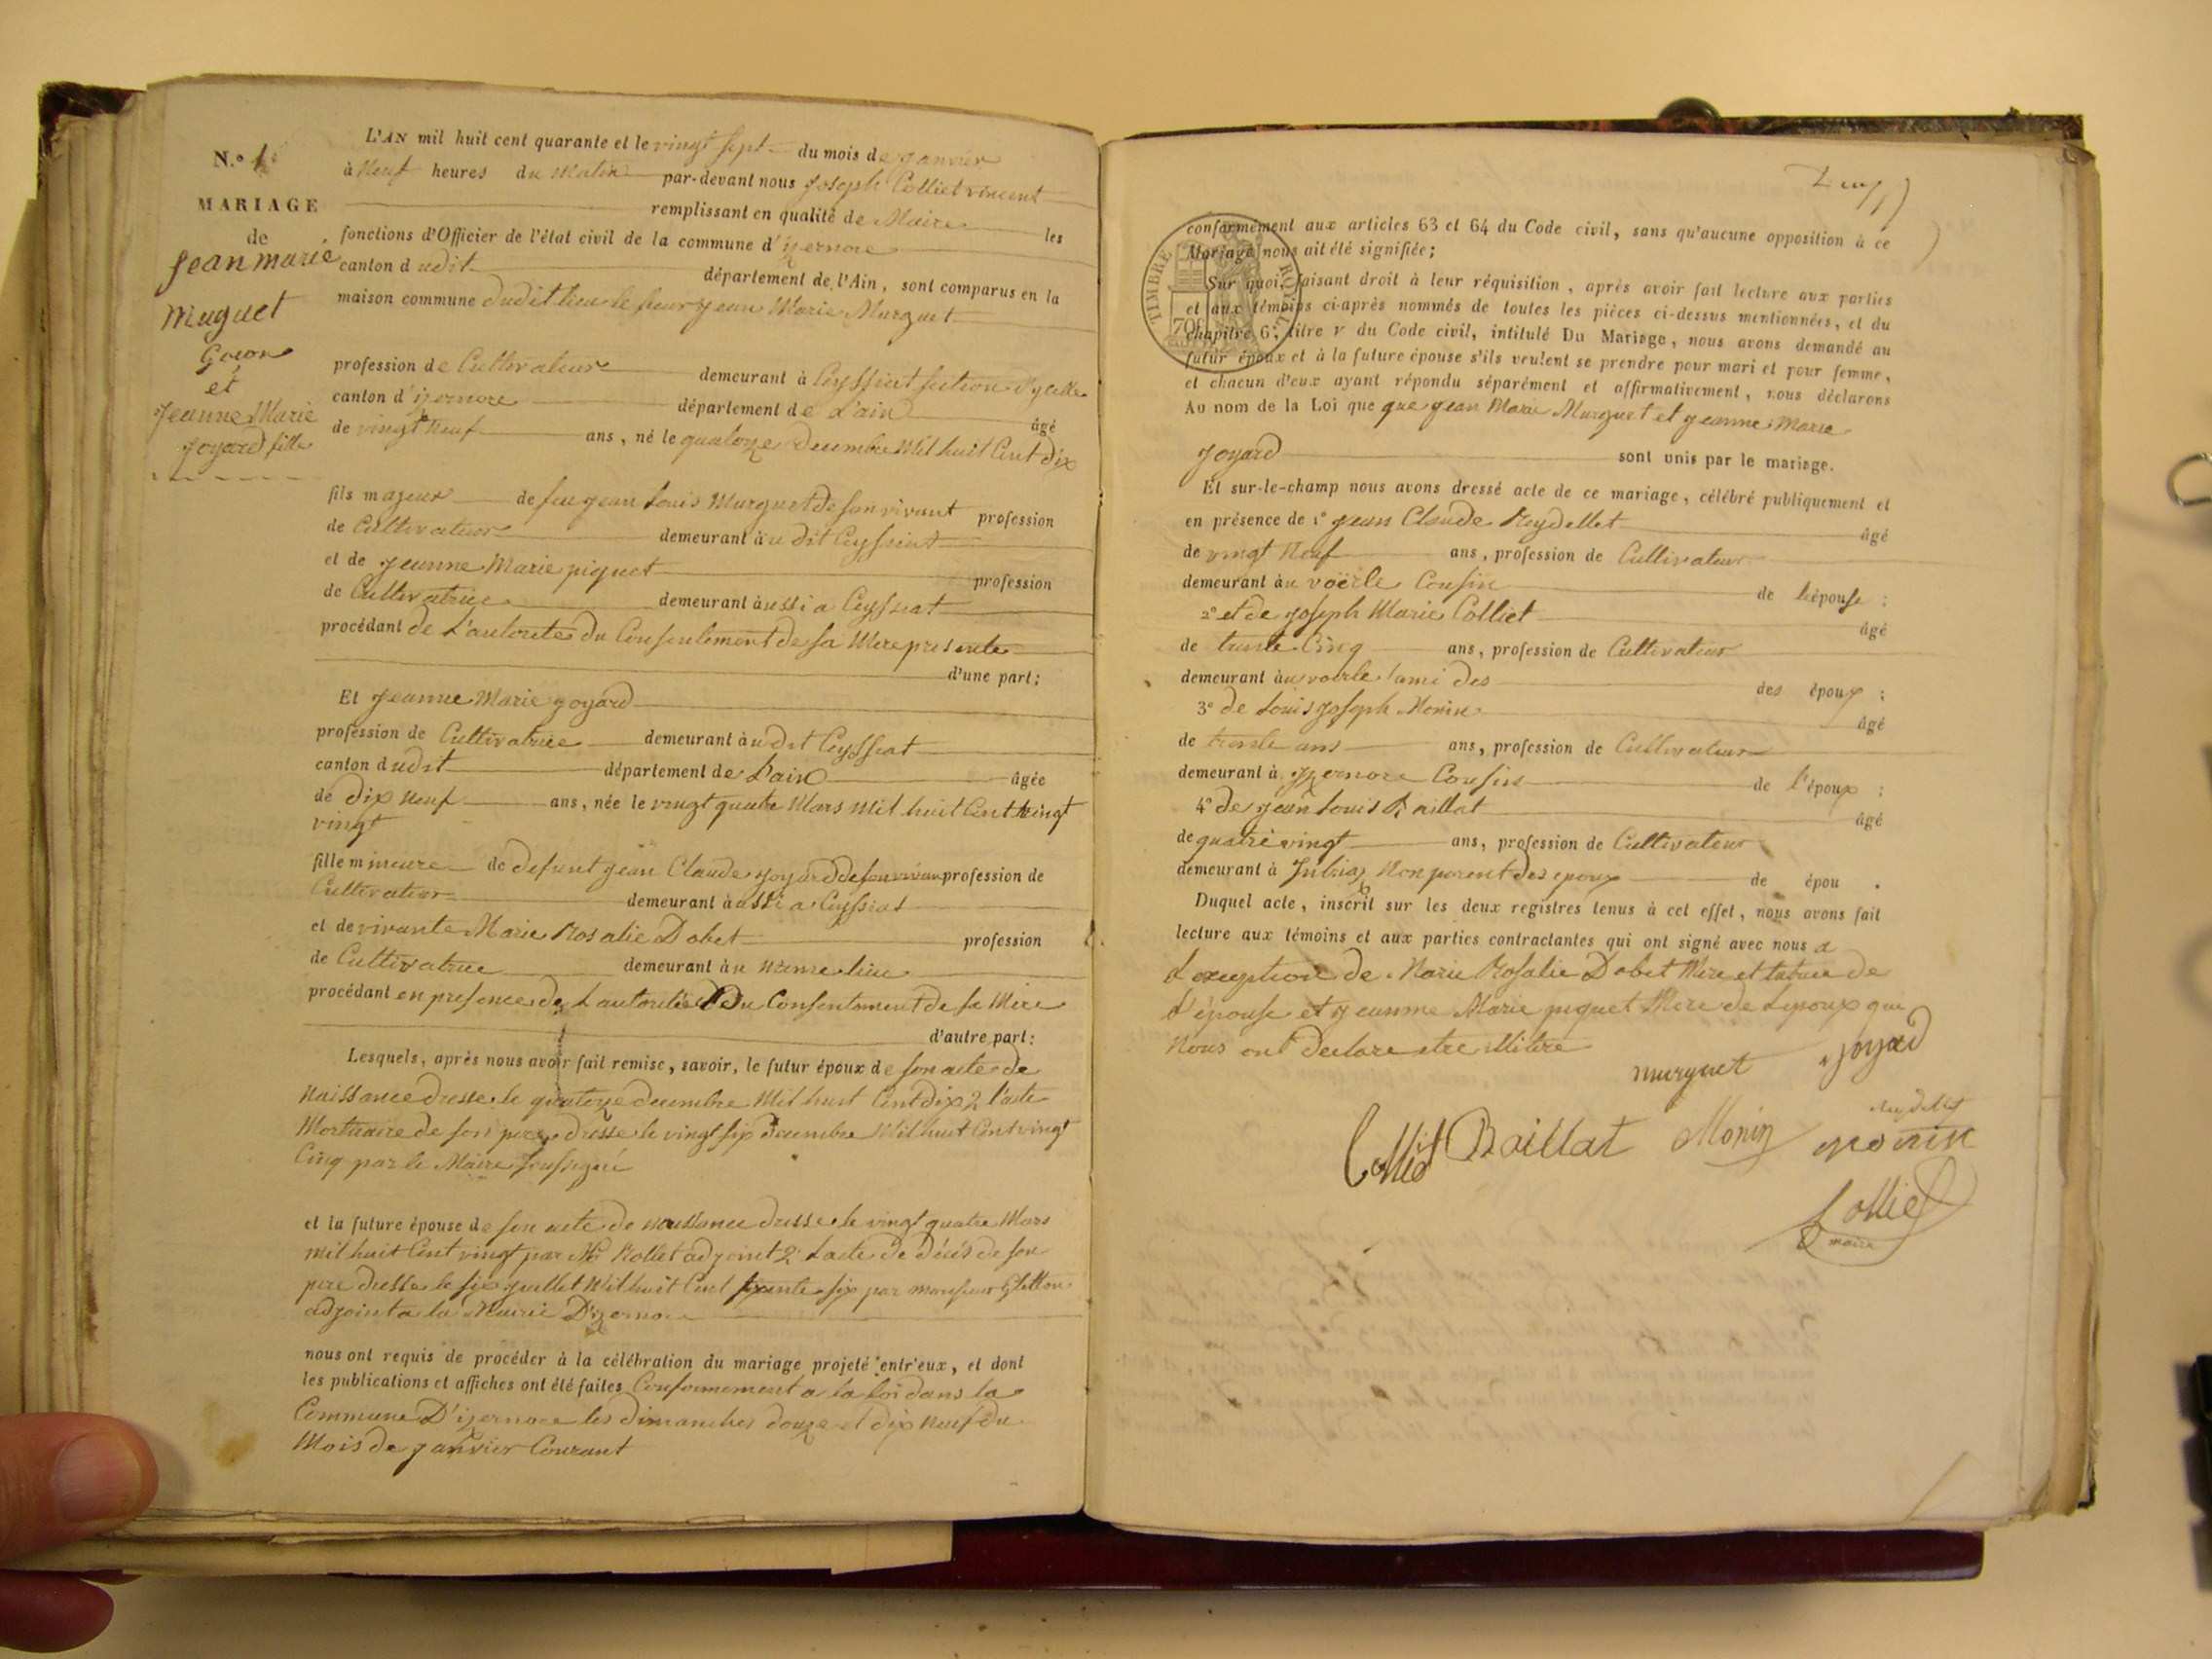 N.º 1
MARIAGE
de
Jean marie
Muguet
Garçon
et
Jeanne Marie
Joyard fille
L'AN mil huit cent quarante et le vingt sept du mois de janvier
à Neuf heures du Matin par-devant nous Joseph Colliet vincent
remplissant en qualité de Maire les
fonctions d'Officier de l'état civil de la commune d'izernore
canton dudit département de l'Ain, sont comparus en la
maison commune dudit lieu le sieur jean Marie Murguet
profession de Cultivateur demeurant à Ceyssiat section d'ycelle
canton d'izernore département de L'ain âgé
de vingt Neuf ans, né le quatorze decembre Mil huit Cent dix
fils majeur de feu jean Louis Murguet de son vivant profession
de Cultivateur demeurant àu dit Ceyssiat
et de jeanne Marie piquet profession
de Cultivatrice demeurant àussi a Ceyssiat
procédant de L'autorité du Consentement de sa Mere presente
d'une part;
Et jeanne Marie joyard
profession de Cultivatrice demeurant àu dit Ceyssiat
canton dudit département de L'ain âgée
de dix neuf ans, née le vingt quatre Mars mil huit Cent vingt
vingt
fille mineure de defunt jean Claude joyard de son vivan profession de
Cultivateur demeurant àussi a Ceyssiat
et de vivante Marie Rosalie Dobet profession
de Cultivatrice demeurant àu meme lieu
procédant en presence de L'autorité Du Consentement de sa Mere
d'autre part:
Lesquels, après nous avoir fait remise, savoir, le futur époux de son acte de
Naissance dressé le quatorze decembre Mil huit Cent dix 2 l'acte
Mortuaire de son pere dressé le vingt six Decembre Mil huit Cent vingt
Cinq par le Maire soussigné
et la future épouse de son acte de naissance dressé le vingt quatre Mars
mil huit Cent vingt par Mr Rollet adjoint 2 L'acte de décés de son
pere dressé le six juillet Mil huit Cent trente six par monsieur
adjoint a la Mairie D'izernore
nous ont requis de procéder à la célébration du mariage projeté entr'eux, et dont
les publications et affiches ont été faites Conformement a la loi dans la
Commune D'izernore les dimanches douze et dix neuf du
Mois de janvier Courant
conformément aux articles 63 et 64 du Code civil, sans qu'aucune opposition à ce
Mariage nous ait été signifiée;
TIMBRE ROYAL
70c
Sur quoi, faisant droit à leur réquisition, après avoir fait lecture aux parties
et aux témoins ci-après nommés de toutes les pièces ci-dessus mentionnées, et du
chapitre 6, titre v du Code civil, intitulé Du Mariage, nous avons demandé au
futur époux et à la future épouse s'ils veulent se prendre pour mari et pour femme,
et chacun d'eux ayant répondu séparément et affirmativement, nous déclarons
Au nom de la Loi que que jean Marie Murguet et jeanne Marie
joyard sont unis par le mariage.
Et sur-le-champ nous avons dressé acte de ce mariage, célébré publiquement et
en présence de 1º jean Claude Reydellet âgé
de vingt Neuf ans, profession de Cultivateur
demeurant àu voërle Cousin de l'épouse;
2º et de joseph Marie Colliet âgé
de trente Cinq ans, profession de Cultivateur
demeurant àu voerle ami des des époux;
3º de Louis joseph Monin âgé
de trente ans ans, profession de Cultivateur
demeurant à izernore Cousin de l'époux;
4º de jean Louis Baillat âgé
de quatre vingt ans, profession de Cultivateur
demeurant à Intriaz Non parent des epoux de épou .
Duquel acte, inscrit sur les deux registres tenus à cet effet, nous avons fait
lecture aux témoins et aux parties contractantes qui ont signé avec nous a
L'exception de Marie Rosalie Dobet Mere et tutrice de
L'épouse et jeanne Marie piquet Mere de L'epoux que
Nous ont declare etre illitere
murguet joyard
Colliet Baillat Monin
Colliet
maire